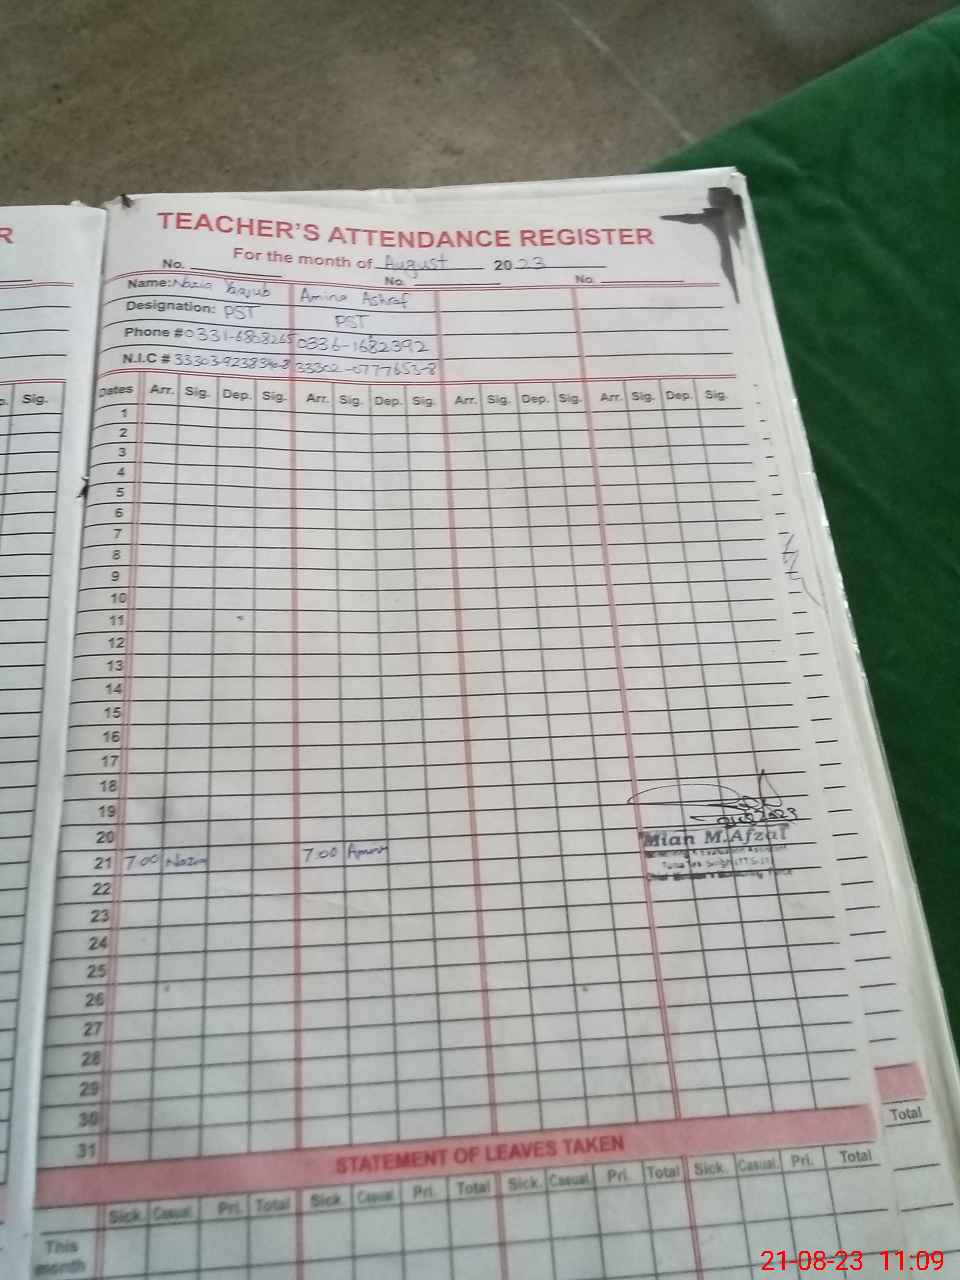 R
TEACHER'S ATTENDANCE REGISTER
For the month of August 2023
No. No. No.
Name: Nazia Yaqub Amina Ashraf
Designation: PST PST
Phone # 0336-1682392
N.I.C # 33302-0777653-8
Sig. Dates Arr. Sig. Dep. Sig. Arr. Sig. Dep. Sig. Arr. Sig. Dep. Sig. Arr. Sig. Dep. Sig.
1
2
3
4
5
6
7
8
9
10
11
12
13
14
15
16
17
18
19
20
Mian M.Afzal
21 7:00 Nazia 7:00 Amina
22
23
24
25
26
27
28
29
30
31
STATEMENT OF LEAVES TAKEN
Total
Sick. Casual. Pri. Total Sick. Casual. Pri. Total Sick. Casual. Pri. Total Sick. Casual. Pri. Total
This
month
21-08-23 11:09